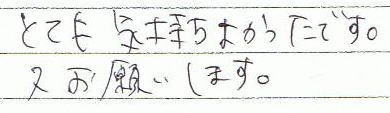 とても気持ちよかったです。
又お願いします。